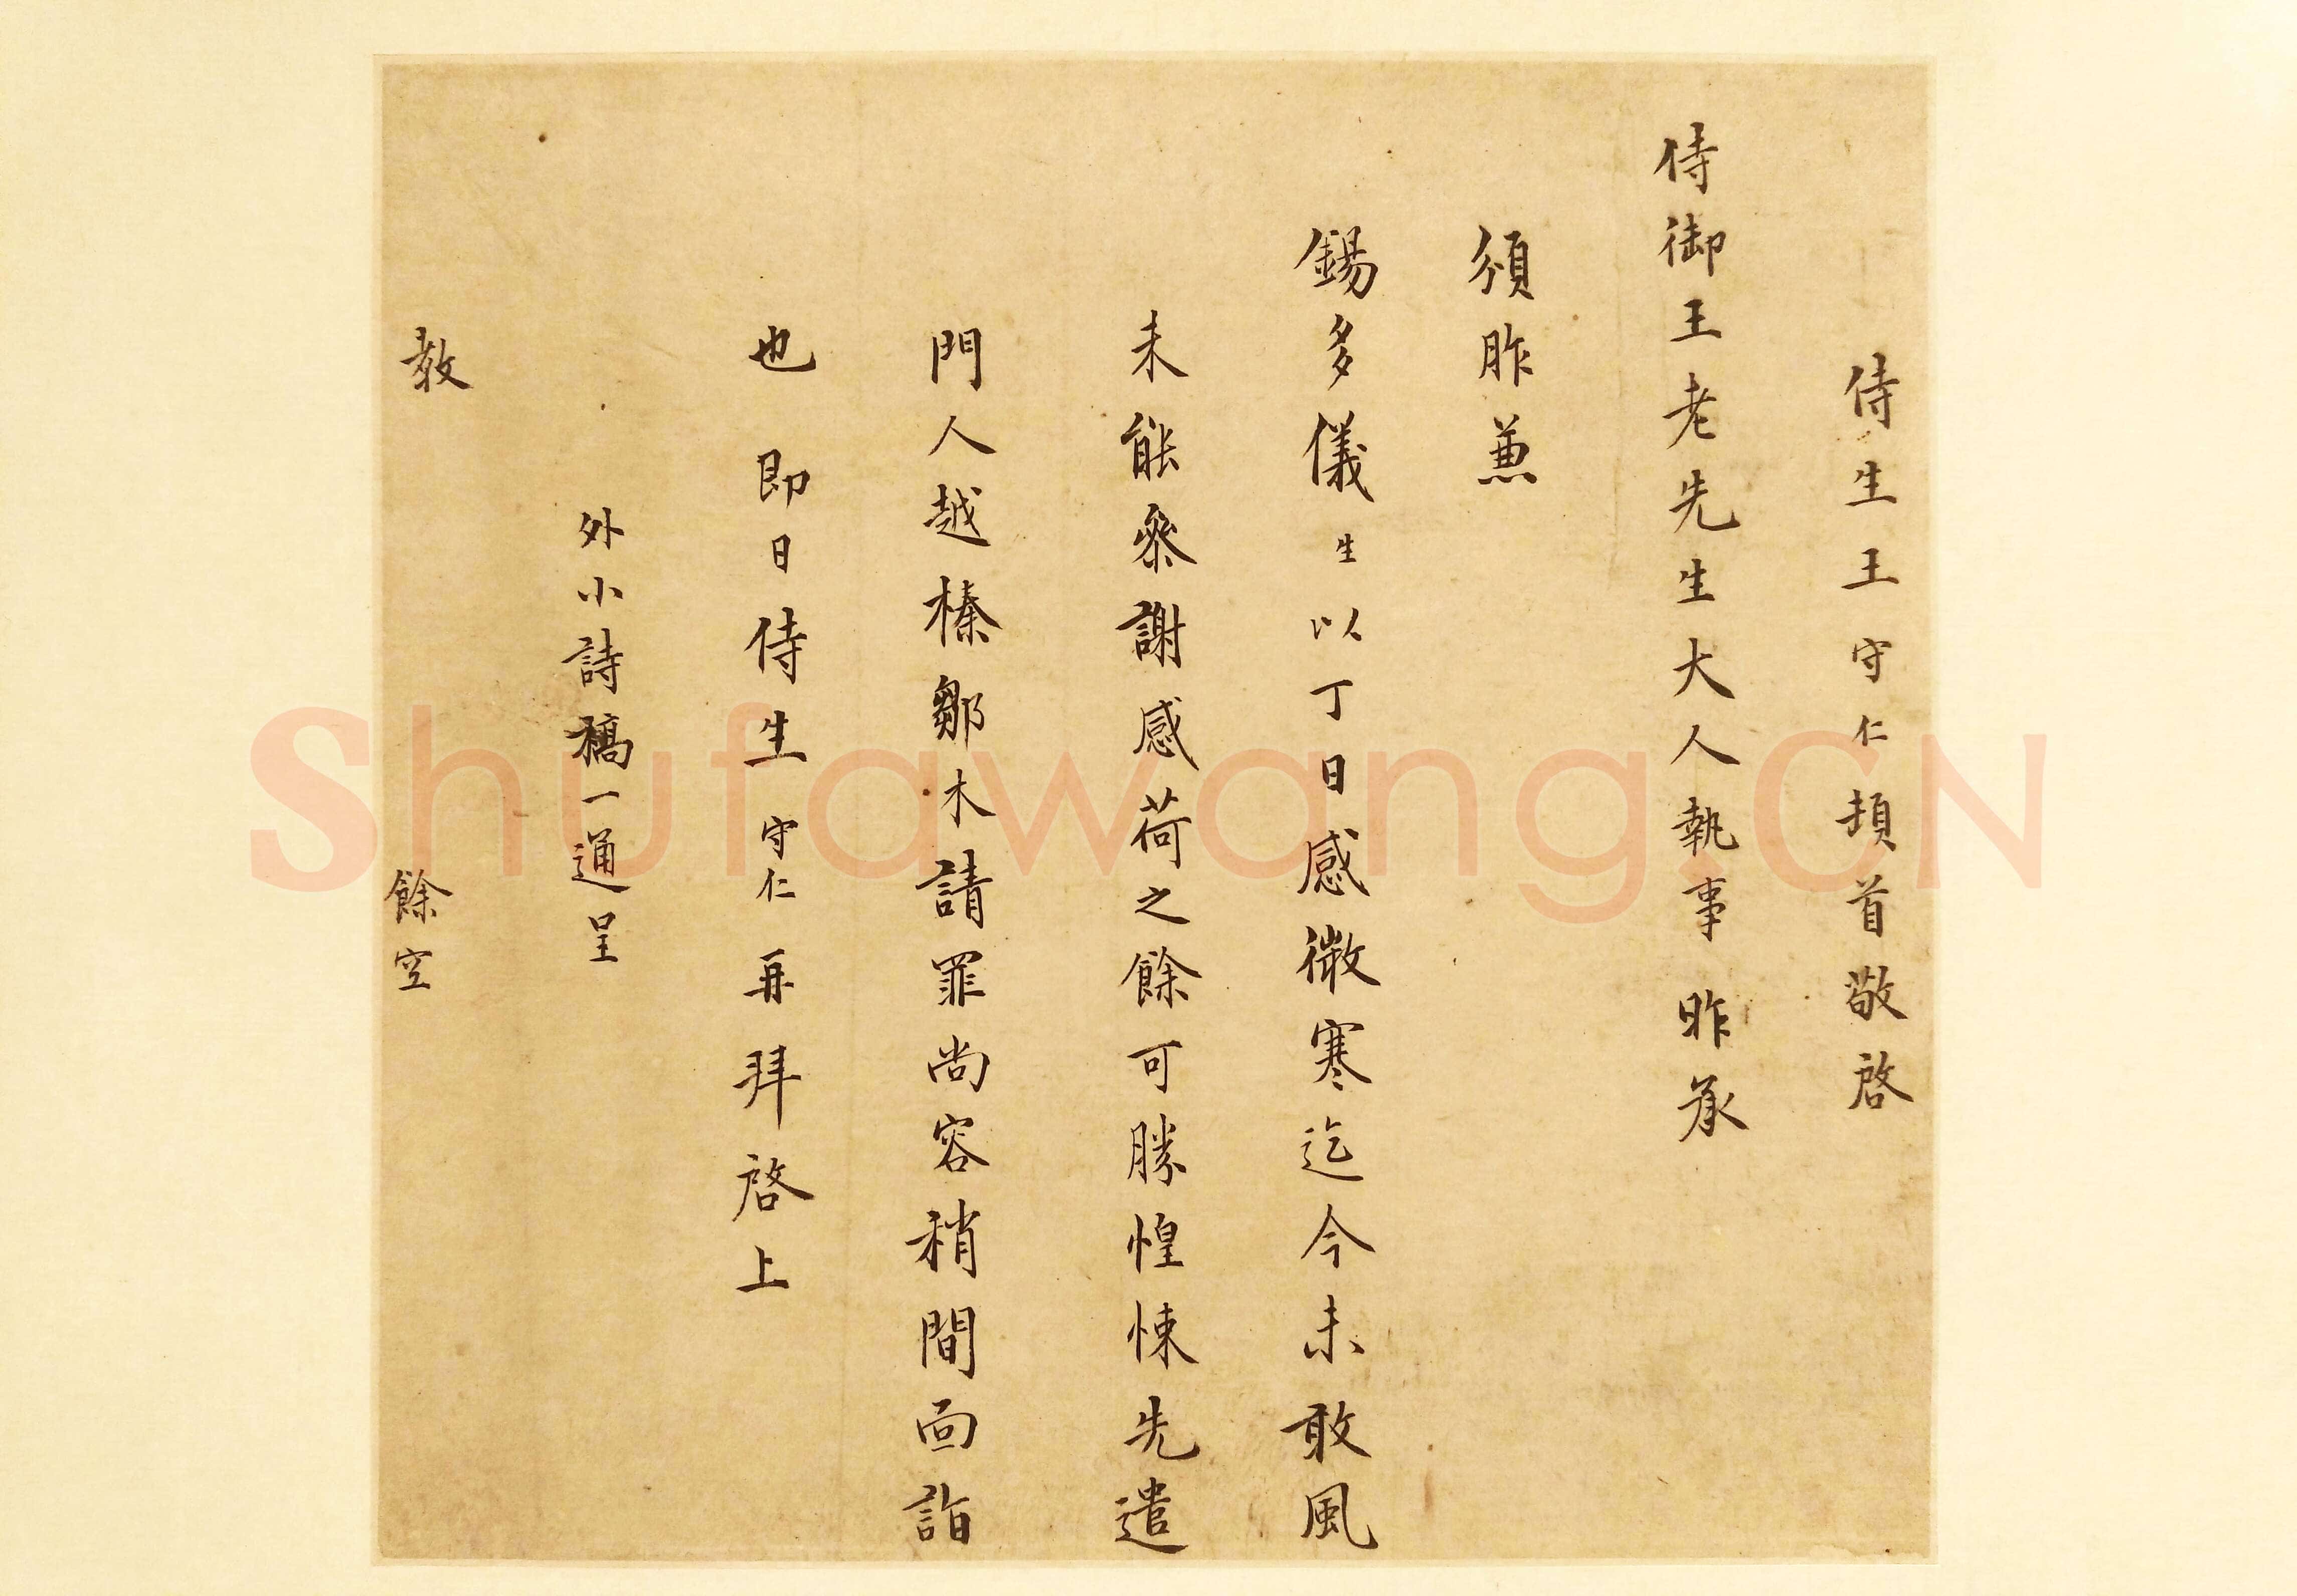 侍生王守仁頓首敬啓
侍御王老先生大人執事昨承
頒胙兼
錫多儀生以丁日感微寒迄今未敢風
未能叅謝感荷之餘可勝惶悚先遣
門人越榛鄒木請罪尚容稍間面詣
也即日侍生守仁再拜啓上
外小詩稿一通呈
教 餘空
Shufawang.CN